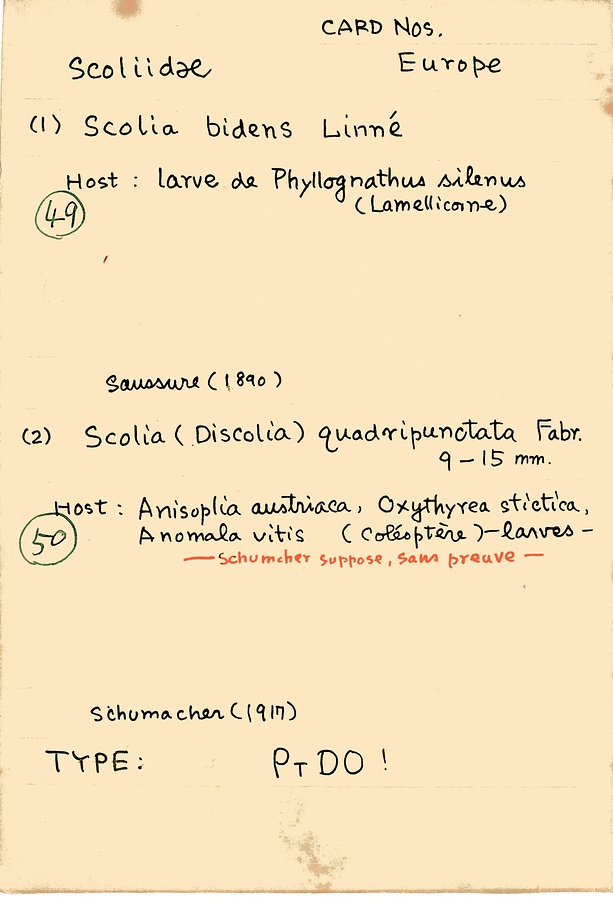 CARD Nos.
Scoliidae Europe
(1) Scolia bidens Linné
Host : larve de Phyllognathus silenus
(Lamellicorne)
49
Saussure (1890)
(2) Scolia (Discolia) quadripunctata Fabr.
9 – 15 mm.
Host : Anisoplia austriaca, Oxythyrea stictica,
50 Anomala vitis (Coléoptère) – larves –
— Schumcher suppose, sans preuve —
Schumacher (1917)
TYPE: PTDO !